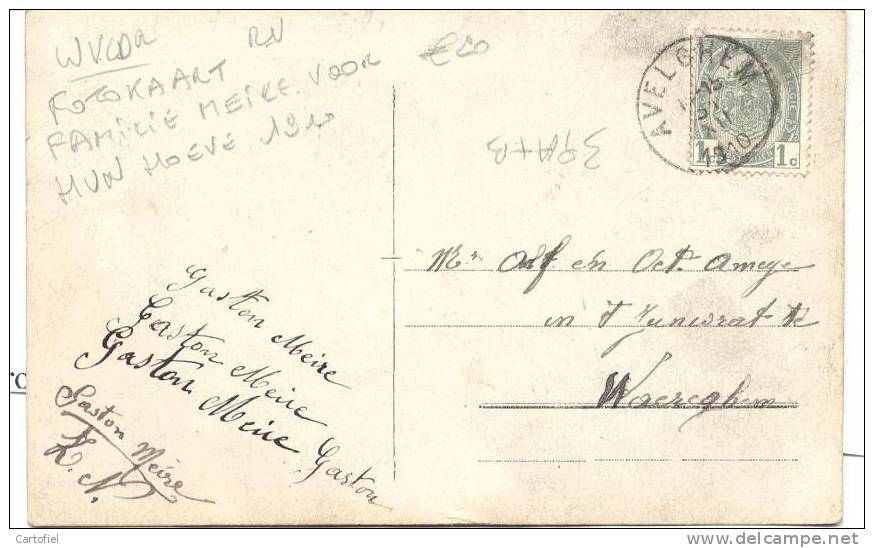 WVLDR RN €20
FOTOKAART
FAMILIE MEIRE VOOR
HUN HOEVE 1910
AVELGHEM
1910
1 1c
Gaston Meire
Gaston Meire
Gaston Meire
Gaston
Gaston Meire
Mrs Alf. en Oct. Ameye
in
Waereghem
Cartofiel
www.delcampe.net